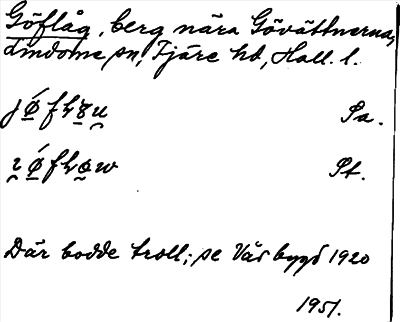 Göflåg, berg nära Gövättnerna,
Lindome sn, Fjäre hd, Hall. l.
Sa.
St.
Där bodde troll; se Vår bygd 1920
1951.